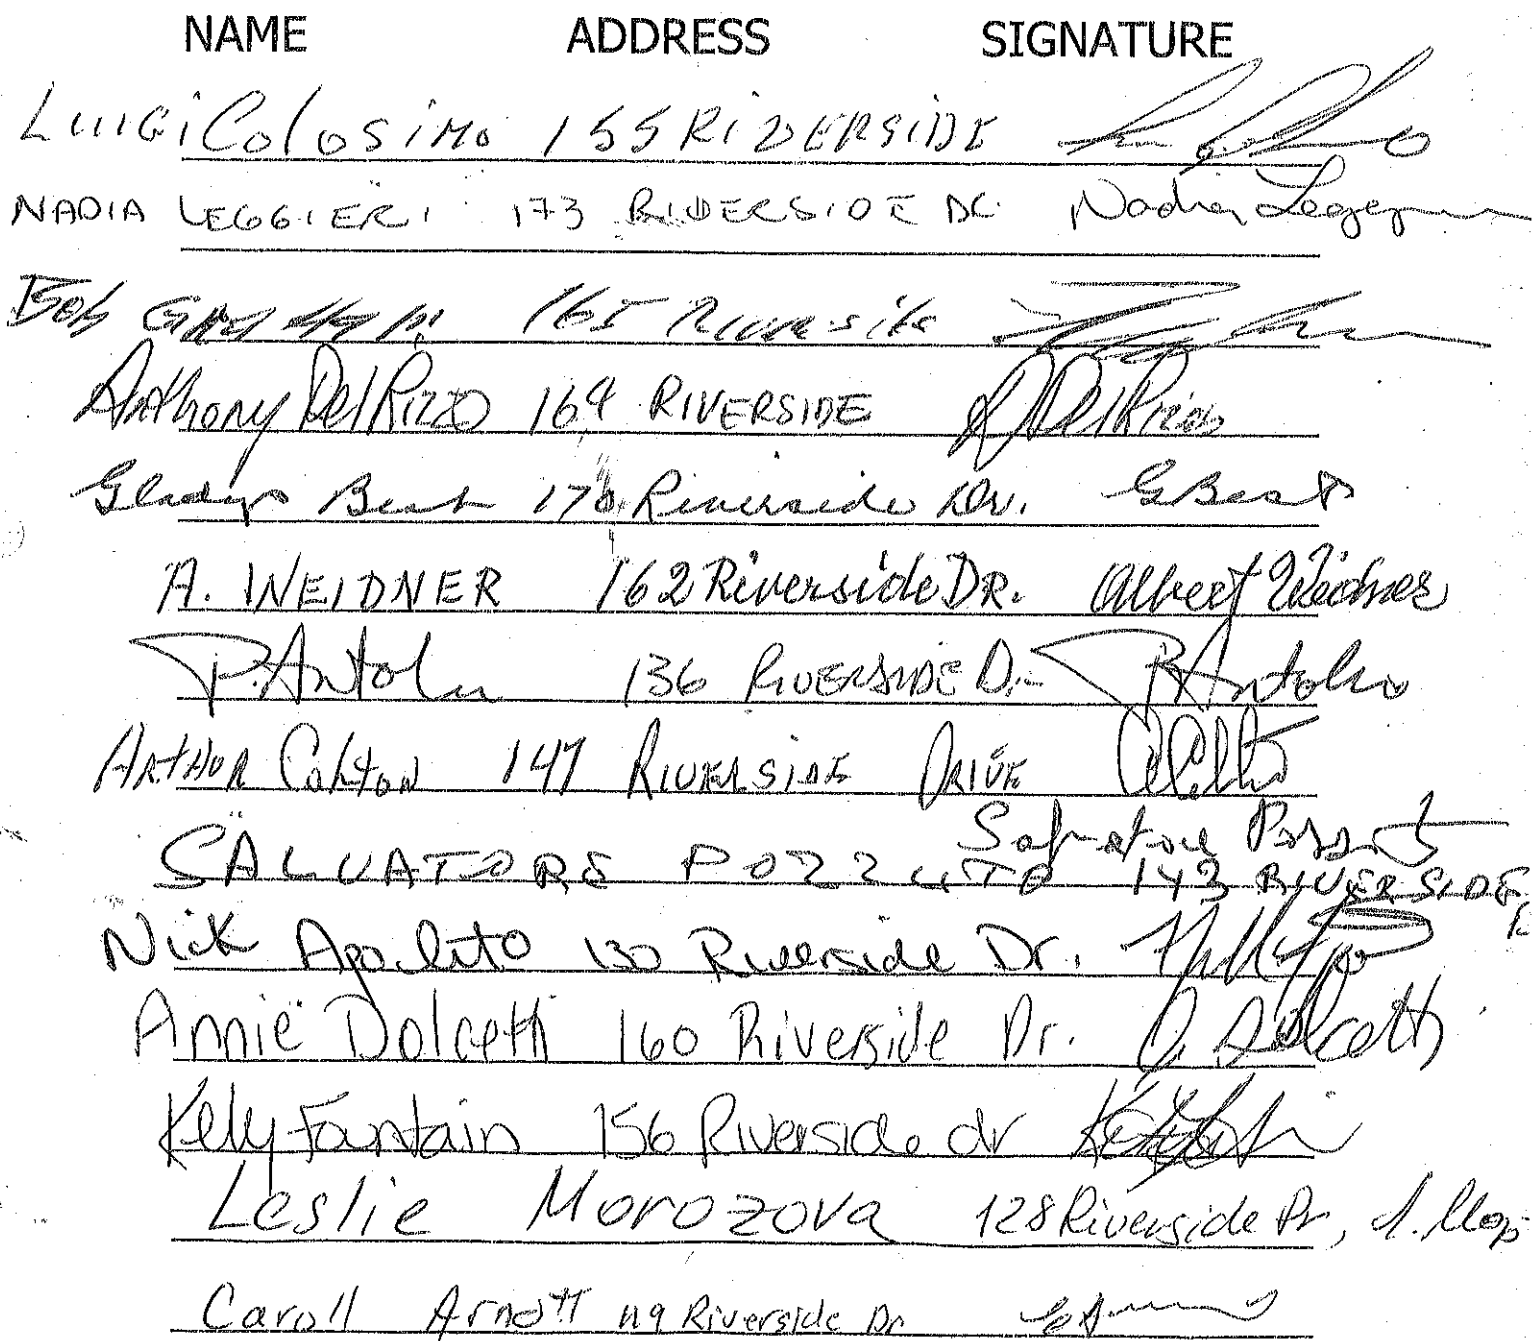 NAME ADDRESS SIGNATURE
LUIGI Colosimo 155 RIVERSIDE
NADIA LEGGIERI 173 RIVERSIDE DR. Nadia Leggieri
Bob 165 Riverside
Anthony DelRizzo 164 RIVERSIDE A DelRizzo
Gladys Best 170 Riverside Dr. G Best
A. WEIDNER 162 Riverside DR. Albert Weidner
P. Antolin 136 RIVERSIDE Dr.
ARTHUR Colton 147 RIVERSIDE DRIVE
Salvatore Pozzuto
SALVATORE POZZUTO 143 RIVERSIDE
Nick Apolito 130 Riverside Dr.
Annie Dolcetti 160 Riverside Dr. A. Dolcetti
Kelly Fantain 156 Riverside dr
Leslie Morozova 128 Riverside Dr,
Caroll Arnott 119 Riverside Dr